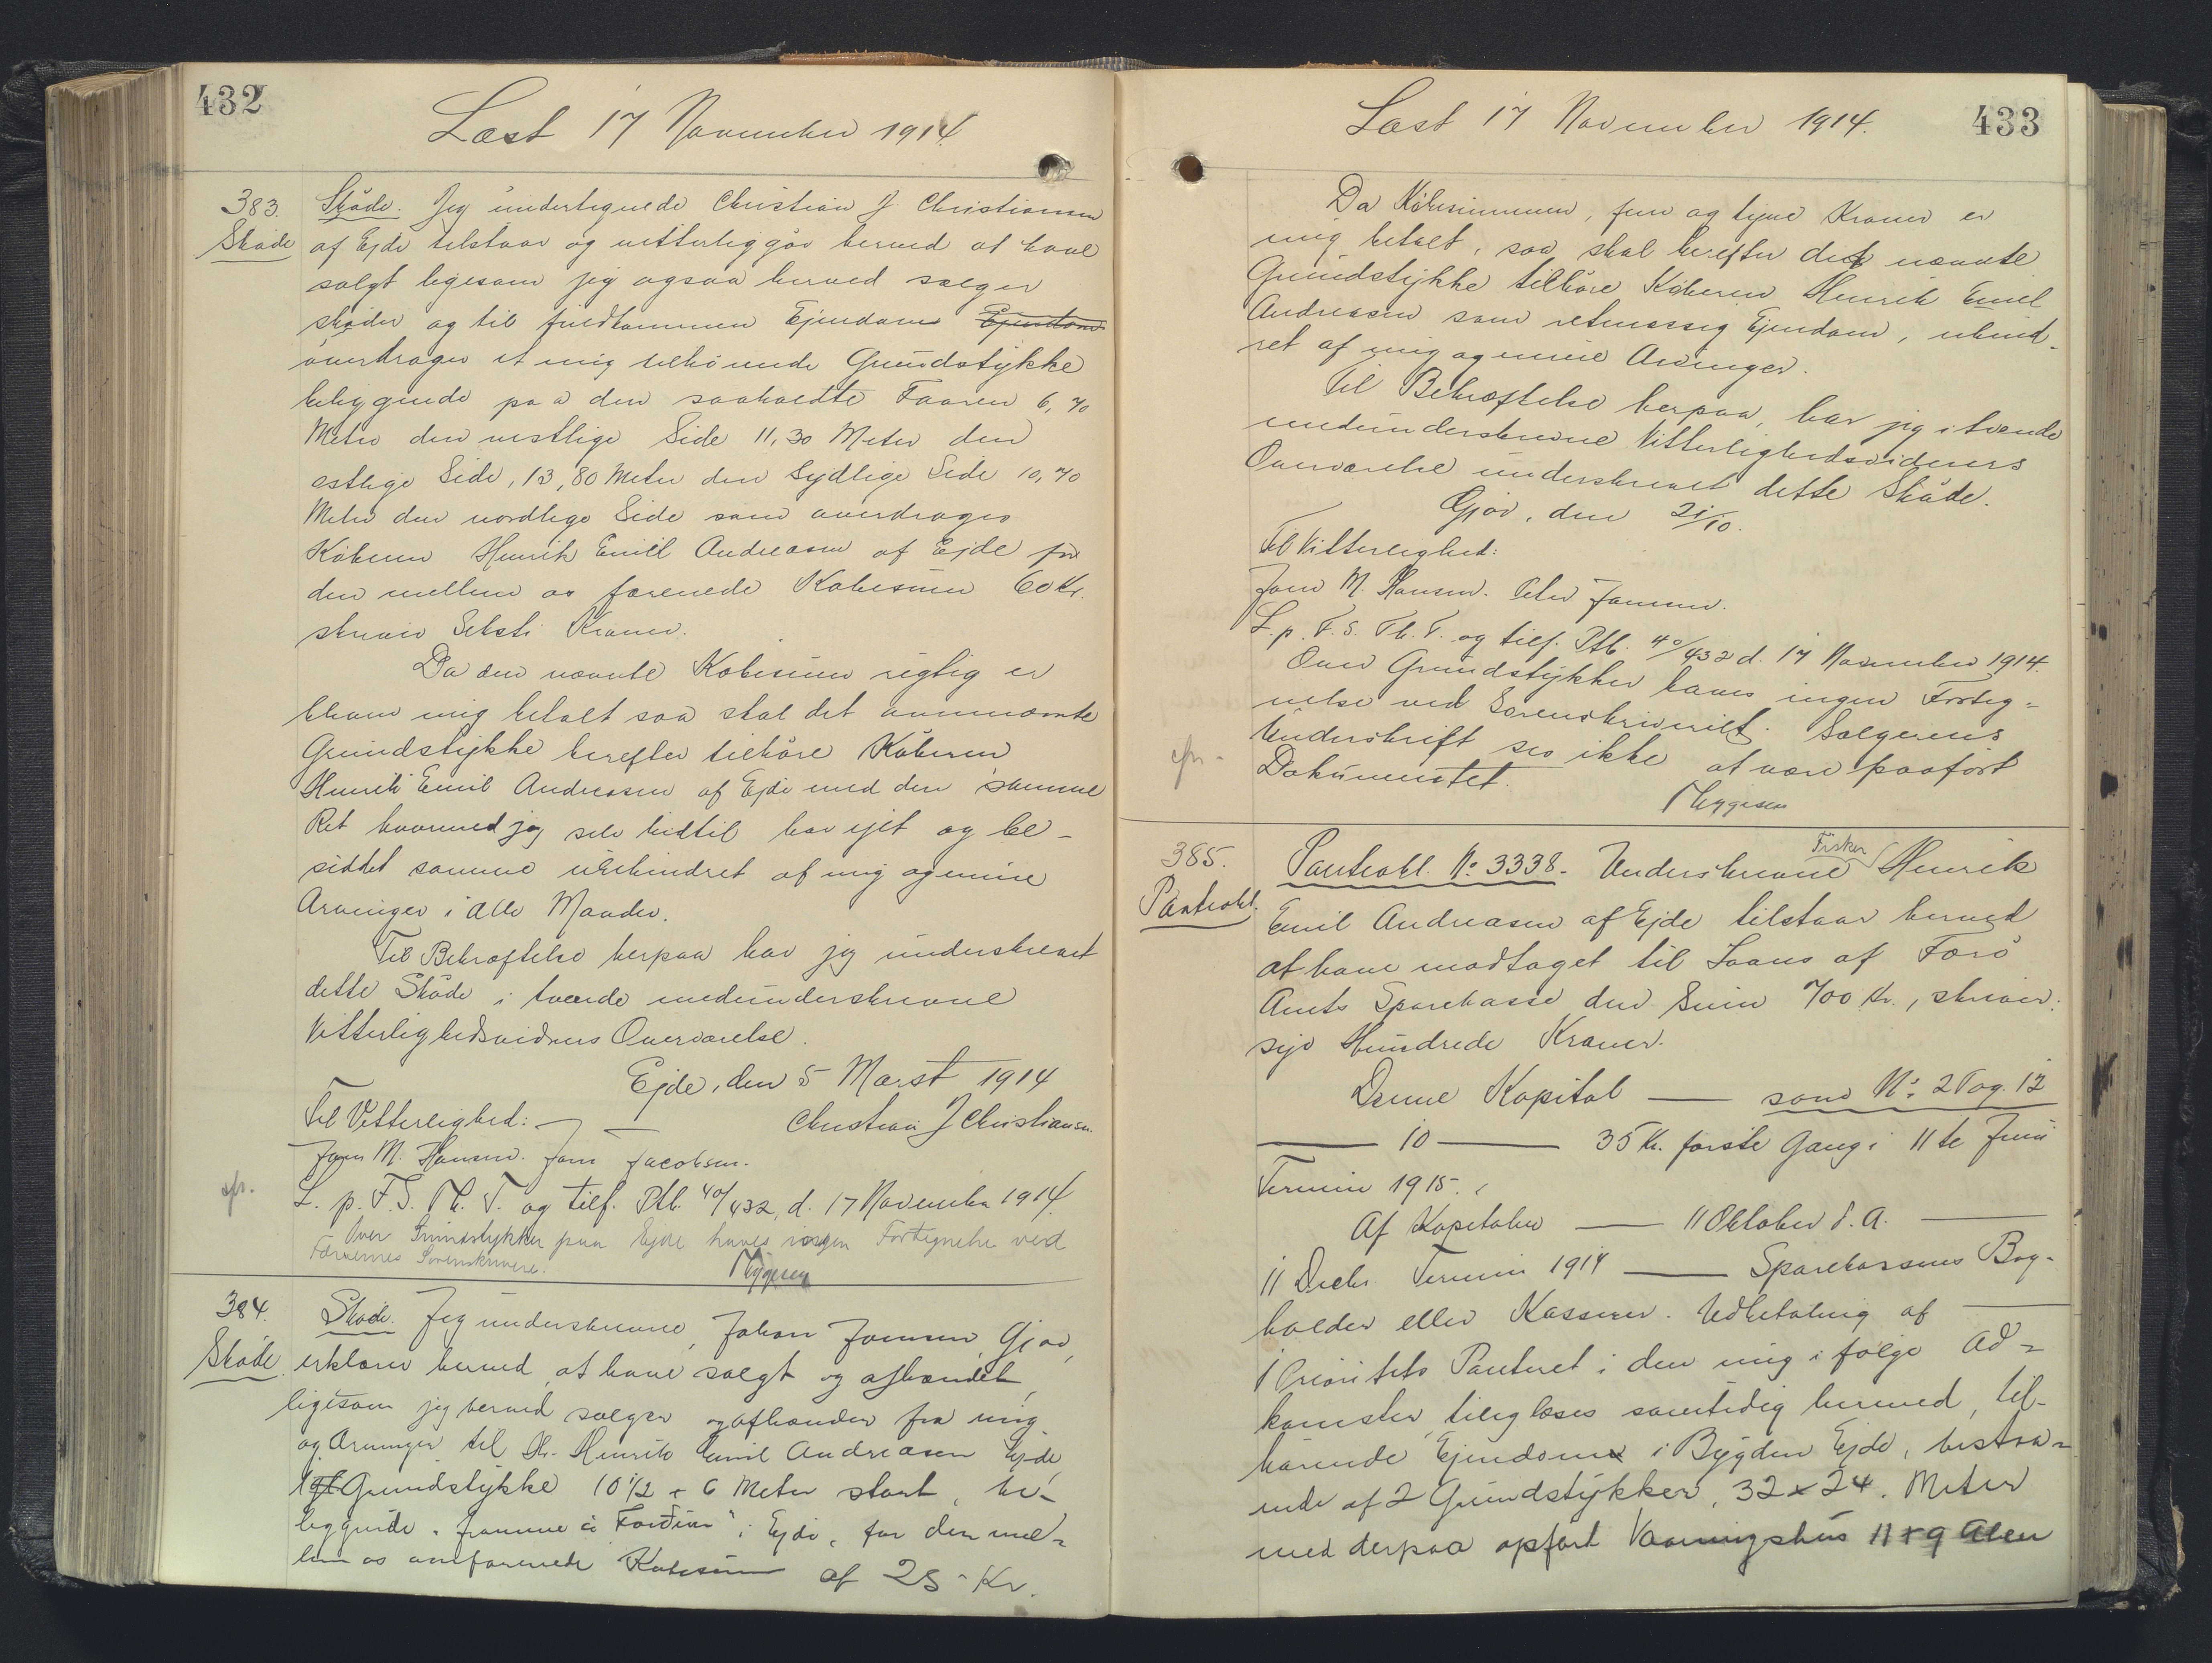 432
Læst 17 November 1914.
383.
Skøde
Skøde. Jeg undertegnede Christian J. Christiansen
af Ejde tilstaar og vitterliggør herved at have
solgt ligesom jeg ogsaa herved sælger
skøder og til fuldkommen Ejendom Ejendom
overdrager et mig tilhørende Grundstykke
beliggende paa den saakaldte Faaren 6,70
Meter den vestlige Side 11,30 Meter den
østlige Side, 13,80 Meter den Sydlige Side 10,70
Meter den nordlige Side som overdrages
Køberen Henrik Emil Andreasen af Ejde for
den mellem os forenede Købesum 60 Kr.
skriver Seksti Kroner.
Da den nævnte Købesum rigtig er
bleven mig betalt saa skal det ommeldte
Grundstykke herefter tilhøre Køberen
Henrik Emil Andreasen af Ejde med den samme
Ret hvormed jeg selv hidtil har ejet og be-
siddet samme uhindret af mig og mine
Arvinger i alle Maader.
Til Bekræftelse herpaa har jeg underskrevet
dette Skøde i tvende medunderskrevne
Vitterlighedsvidners Overværelse.
Ejde, den 5 Marst 1914
Til Vitterlighed:
Christian J Christiansen.
Joen M. Hansen. Joen Jacobsen.
L. p. F. S. Th. T. og tilf. Ptb. 40/432, d. 17 November 1914.
cfr.
Over Grundstykker paa Ejde haves ingen Fortegnelse ved
Færøernes Sorenskriveri.
384.
Skøde.
Skøde. Jeg underskrevne, Johan Joensen, Gjov,
erklærer herved at have solgt og afhændet,
ligesom jeg herved sælger og afhænder fra mig
og Arvinger til Hr. Henrik Emil Andreasen Ejde,
1 Grundstykke 10 1/2 x 6 Meter stort, be-
liggende "framme á Fordini" i Ejde, for den mel-
lem os omforenede Købesum af 25 - Kr.
433
Læst 17 November 1914.
Da Købesummen, fem og tyve Kroner er
mig betalt, saa skal herefter det nævnte
Grundstykke tilhøre Køberen Henrik Emil
Andreasen som retmæssig Ejendom, uhind-
ret af mig og mine Arvinger.
Til Bekræftelse herpaa, har jeg i tvende
medunderskrevne Vitterlighedsvidners
Overværelse underskrevet dette Skøde.
Gjov, den 21/10.
Til Vitterlighed:
Joen M. Hansen. Peter Joensen.
L. p. F. S. Th. T. og tilf. Ptb. 40/432 d. 17 November 1914.
Over Grundstykker haves ingen Forteg-
nelse ved Sorenskriveriet. Sælgerens
Underskrift ses ikke at være paaført
cfr.
Dokumentet.
385.
Panteobl.
Panteobl. No. 3338. Underskrevne Fisker Henrik
Emil Andreasen af Ejde tilstaar herved
at have modtaget til Laans af Færø
Amts Sparekasse den Sum 700 Kr., skriver
syv Hundrede Kroner.
Denne Kapital — som No. 2 Pag. 12
— 10 — 35 Kr. første Gang i 11te Juni
Termin 1915.
Af Kapitalen — 11 Oktober d. A. —
11 Decbr. Termin 1914 — Sparekassens Bog-
holder eller Kasserer. Udbetaling af —
1 Prioritets Panteret i den mig i følge Ad-
komster, tinglæses samtidig hermed, til-
hørende Ejendom i Bygden Ejde, bestaa-
ende af 2 Grundstykker, 32 x 24. Meter
med derpaa opført Vaaningshus 11 x 9 Alen